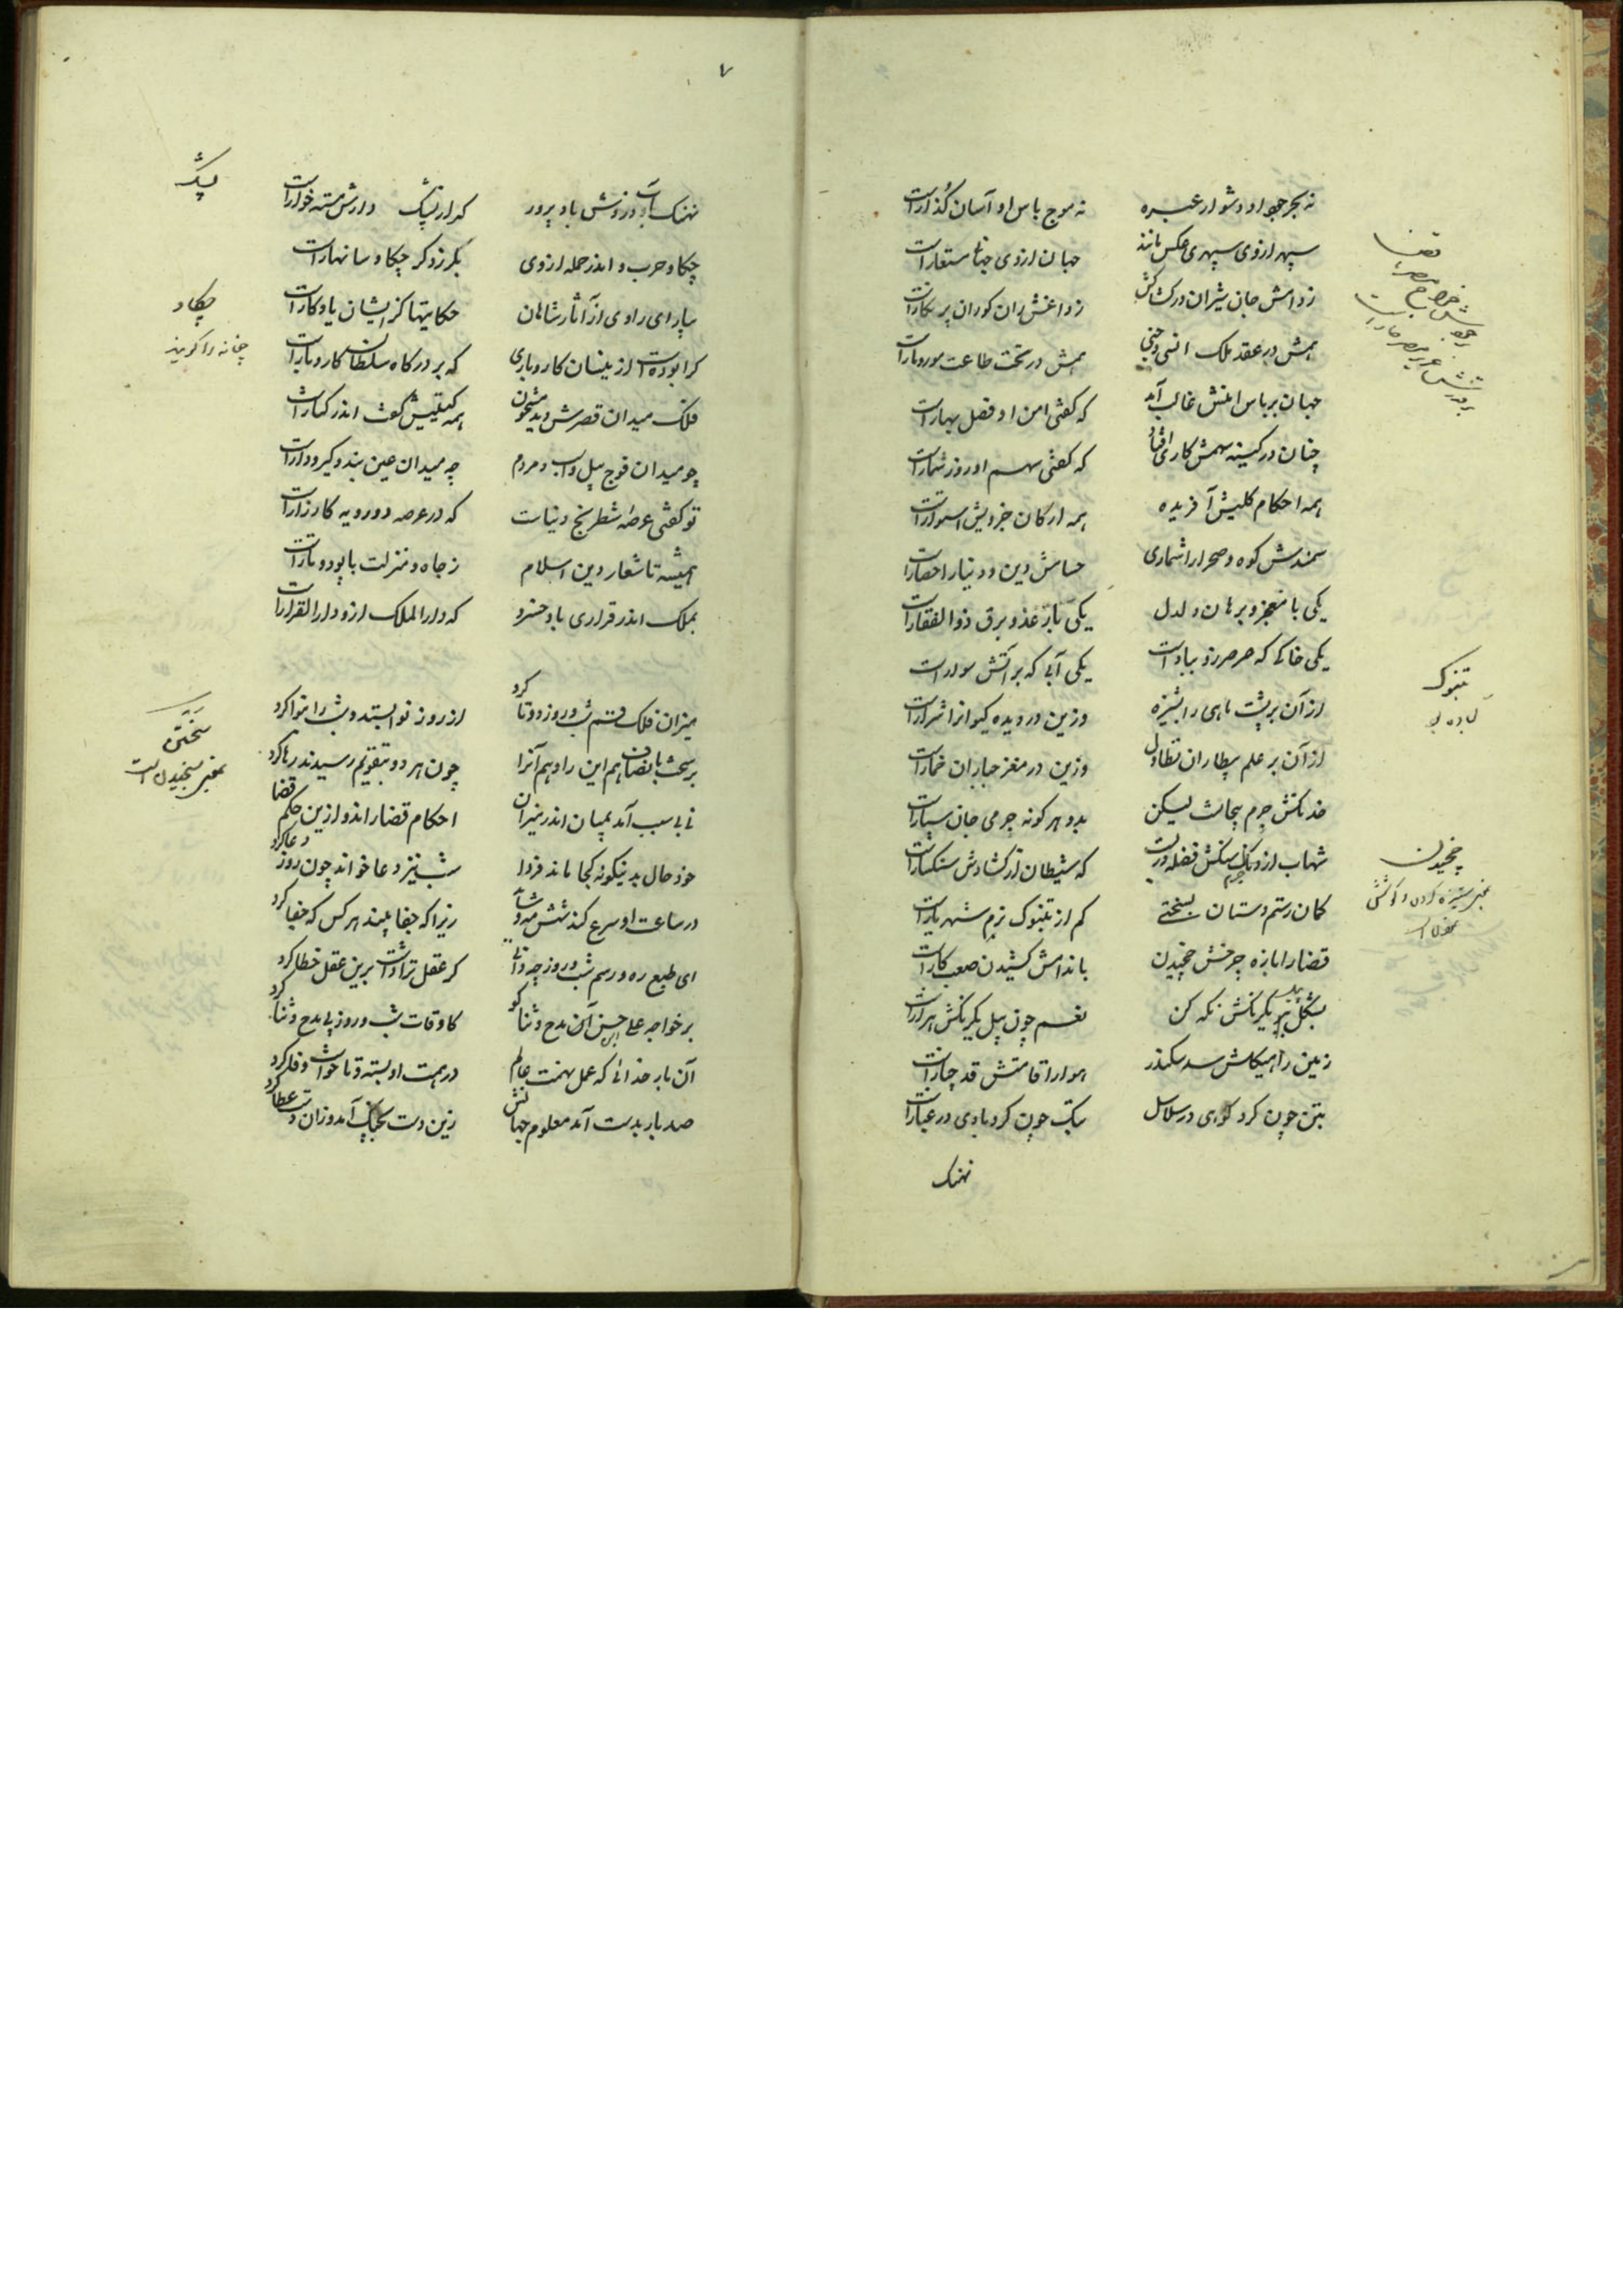 نه بحر جود او دشوار عبره نه موج باس او آسان گذارات
سپهر از وی سپهری عکس مانند جهان از وی جهانی مستعارات
زدامش جان شیران در کشاکش زداغش ران کوران پر نکارات
همش در عقد ملک انسی و جنی همش در تحت طاعت مور و مارات
جهان بر باس امنش غالب آمد که کفتی امن او فصل بهارات
چنان در کینه سهمش کاری افتاد که کفتی سهم او روز شمارات
همه احکام کلیش آفریده همه ارکان جزویش استوارات
سمندش کوه و صحرا را شماری حسامش دین و دنیا را حصارات
یکی با معجز و برهان دلدل یکی با رعد و برق ذوالفقارات
یکی خاکی که صرصر زو ببادات یکی آبی که بر آتش سوارات
از آن بر پشت ماهی را پشیزه وزین در دیده کیوانرا شرارات
از آن بر علم بیطاران تطاول وزین در مغز جباران خمارات
خدنکش جرم بیجانست لیکن بدو هر کونه جرمی جان سپارات
شهاب از ونک سنکش فضله ورات که شیطان از کشادش سنکسارات
کمان رستم دستان بسختی کم از تبنوک نرم شهریارات
قضا را با زه چرخش چخیدن باندامش کشیدن صعب کارات
بشکل ببر یکرنکش نکه کن نغسم چون پیل یکرنکش هزارات
زمین را هیکلش سد سکندر هوا را قامتش قد چنارات
بتن چون کرد کوهی در سلاسل بتک چون کرد بادی در غبارات
نهنک
قضا
تبنوک
چخیدن
بمعنی ستیزه کردن و کوشش
۷
نهنک آب ورزوش باد پرور که از پیشک دارش مسته خوارات
چکاو حرب و اندر حمله از وی بکرز و کر چکاوسا نهارات
بیار ای راوی از آثار شاهان حکایتها کز ایشان یادکارات
کرا بودست ازینسان کار و باری که بر درکاه سلطان کار و بارات
فلک میدان قصرش دید مشحون همه کیتیش کفت اندر کنارات
چو میدان فوج پیل و اسب و مردم چه میدان عین بند و کیر و دارات
تو کفتی عرصه شطرنج دنیاست که در عرصه دو رویه کارزارات
همیشه تا شعار دین اسلام ز جاه و منزلت با پود و تارات
بملک اندر قراری باد خسرو که دار الملک ازو دار القرارات
میزان فلک قسم شب و روز دوتا کرد از روز نوا بستد و شب را بنوا کرد
بر سخت بانصاف هم این را و هم آنرا چون هر دو بتقویم رسیدند رها کرد
نی بی سبب آمد بمیان اندر میزان احکام قضا را اندر ازین حکم قضا کرد
خود حال بدینکونه کجا ماند فردا شب نیز دعا خواند چون روز دعا کرد
در ساعت او سرع کند شش مه و شاید زیرا که جفا بیند هر کس که جفا کرد
ای طبع ره و رسم شب و روز چه دانی کر عقل تو دانست برین عقل خطا کرد
بر خواجه علی حسن آن مدح و ثنا کو کاوقات شب و روز پی مدح و ثنا کرد
آن بار خدائی که عمل نهمت عالم در همت او بسته و ناخواست وفا کرد
صد بار بدست آمد معلوم جهانش زین دست بچنک آمد و زان دست عطا کرد
پیشک
چکاو
چغانه را کویند
سختن
بمعنی سنجیدن است